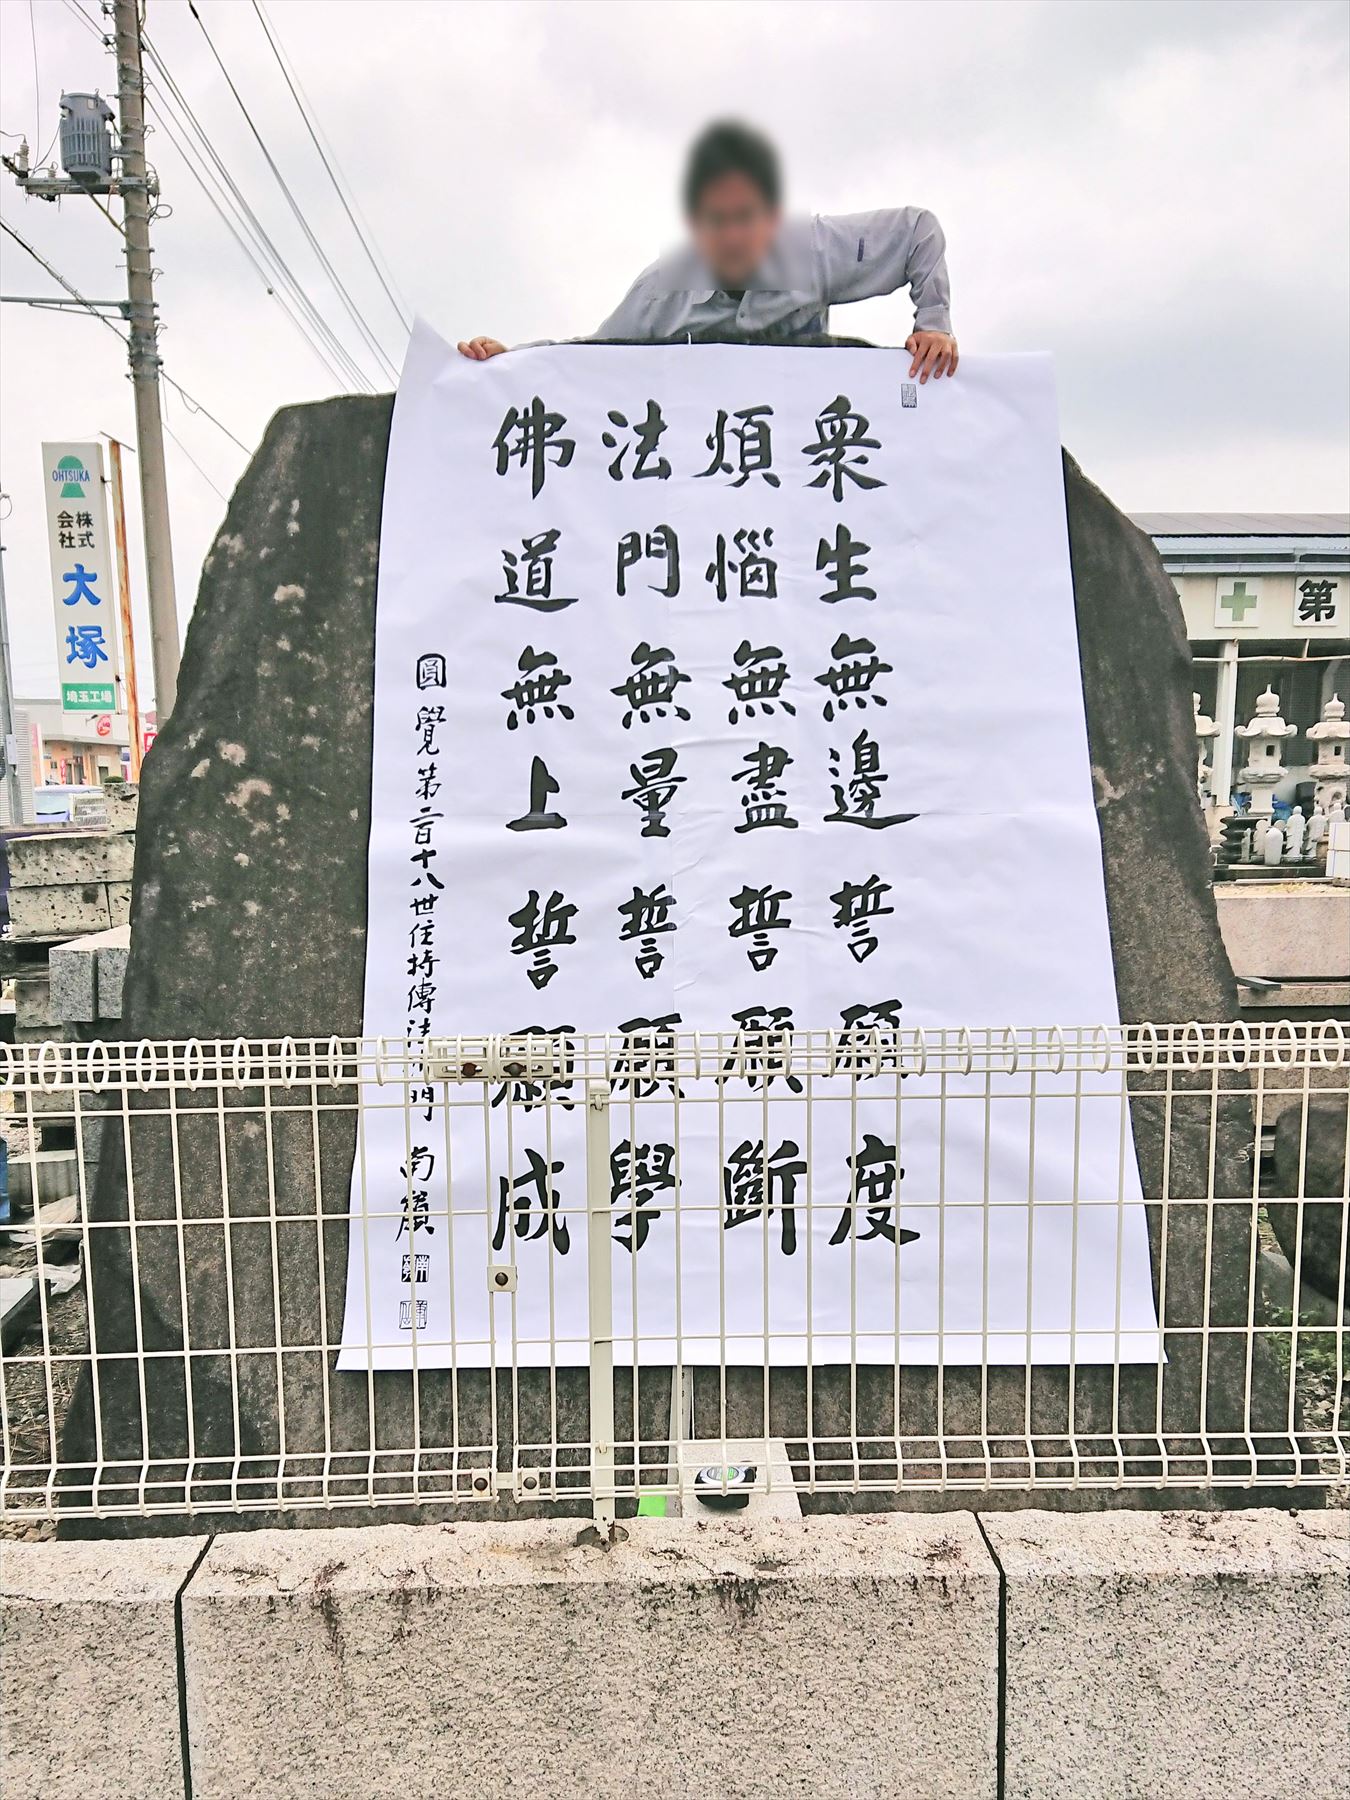 衆生無邊誓願度
煩惱無盡誓願斷
法門無量誓願學
佛道無上誓願成
圓覺第二百十八世住持傳法沙門 南嶺
OHTSUKA
株式
会社
大塚
埼玉工場
第